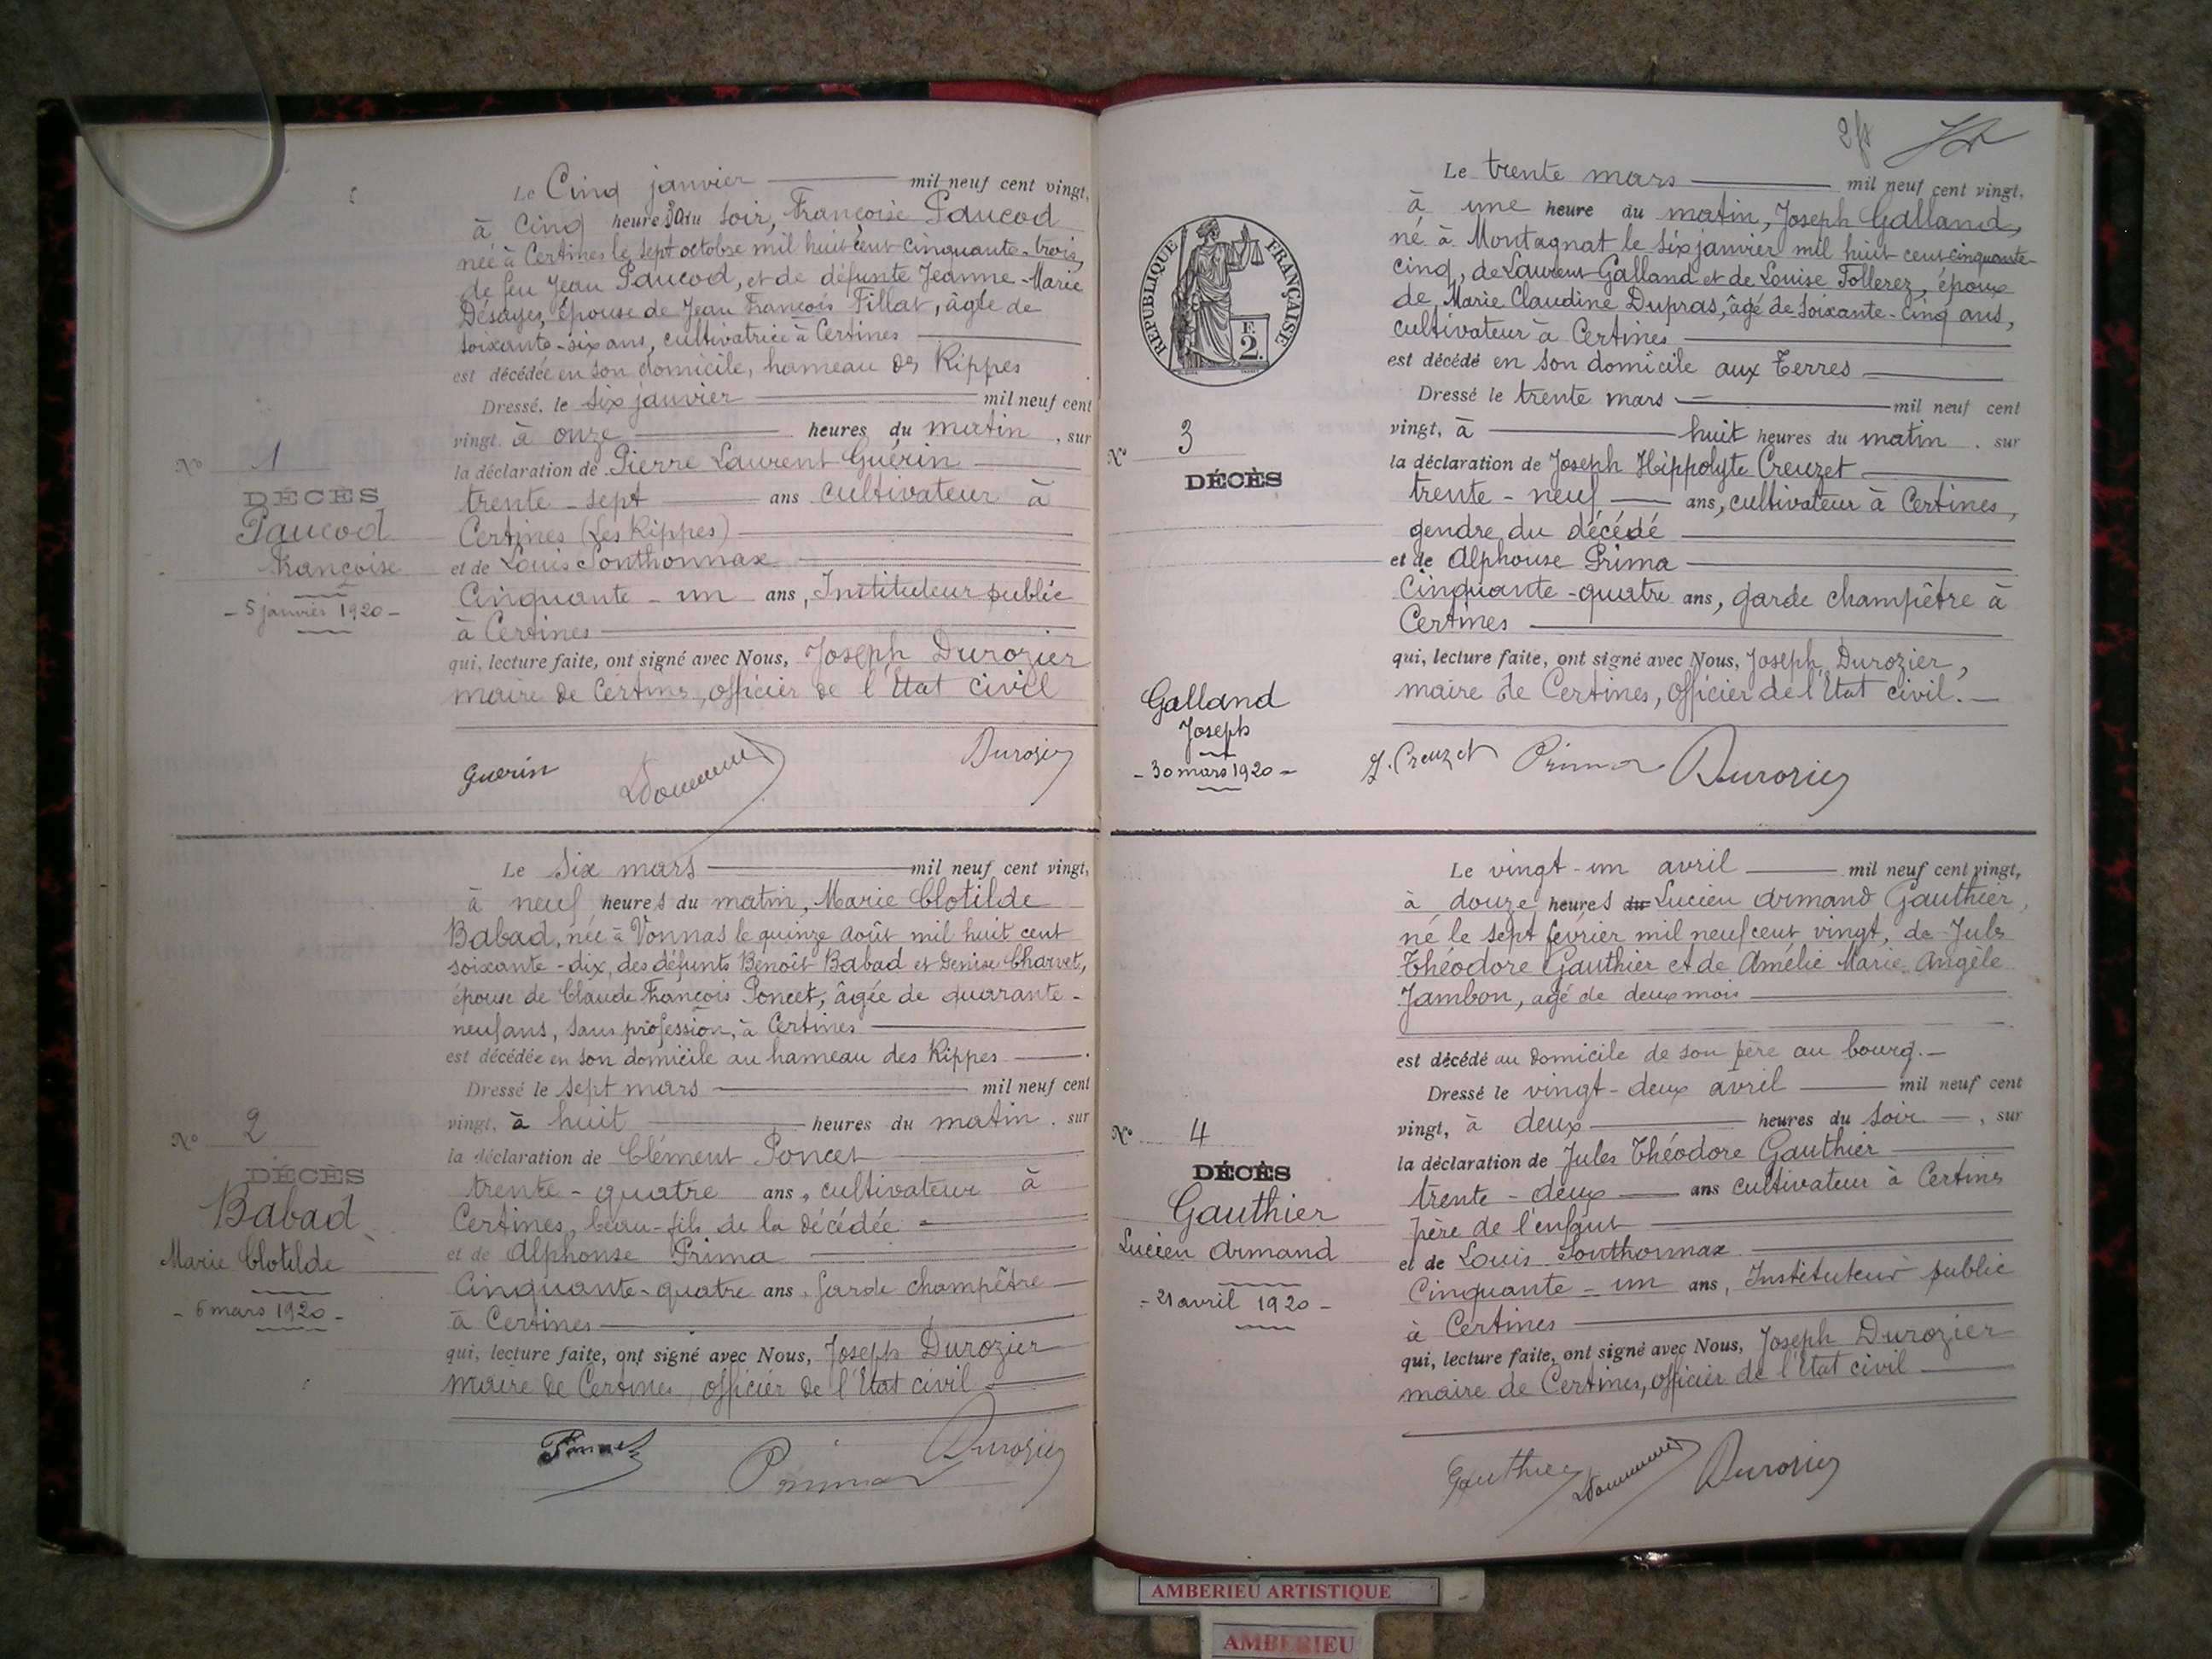 Le Cinq janvier mil neuf cent vingt,
à Cinq heures du soir, Françoise Paucod
née à Certines le sept octobre mil huit cent cinquante-trois,
de feu Jean Paucod, et de défunte Jeanne-Marie
Désayes, épouse de Jean François Fillat, âgée de
soixante-six ans, cultivatrice à Certines
est décédée en son domicile, hameau des Rippes
Dressé, le six janvier mil neuf cent
vingt, à onze heures du matin, sur
la déclaration de Pierre Laurent Guérin
trente-sept ans cultivateur à
Certines (Les Rippes)
et de Louis Sonthonnax
Cinquante-un ans, Instituteur public
à Certines
qui, lecture faite, ont signé avec Nous, Joseph Durozier
maire de Certines, officier de l'Etat civil
Guerin Durozier
N° 1
DÉCÈS
Paucod
Françoise
- 5 janvier 1920 -
Le Six mars mil neuf cent vingt,
à neuf heures du matin, Marie Clotilde
Babad, née à Vonnas le quinze août mil huit cent
soixante-dix, des défunts Benoît Babad et Denise Charvet,
épouse de Claude François Poncet, âgée de quarante-
neuf ans, sans profession, à Certines
est décédée en son domicile au hameau des Rippes
Dressé le sept mars mil neuf cent
vingt, à huit heures du matin, sur
la déclaration de Clément Poncet
trente-quatre ans, cultivateur à
Certines, beau-fils de la décédée
et de Alphonse Prima
Cinquante-quatre ans, garde champêtre
à Certines
qui, lecture faite, ont signé avec Nous, Joseph Durozier
maire de Certines, officier de l'Etat civil
Prima Durozier
N° 2
DÉCÈS
Babad
Marie Clotilde
- 6 mars 1920 -
RÉPUBLIQUE FRANÇAISE
F.
2.
Le trente mars mil neuf cent vingt,
à une heure du matin, Joseph Galland,
né à Montagnat le six janvier mil huit cent cinquante-
cinq, de Laurent Galland et de Louise Tollerez, époux
de Marie Claudine Dupras, âgé de soixante-cinq ans,
cultivateur à Certines
est décédé en son domicile aux Terres
Dressé le trente mars mil neuf cent
vingt, à huit heures du matin, sur
la déclaration de Joseph Hippolyte Creuzet
trente-neuf ans, cultivateur à Certines,
gendre du décédé
et de Alphonse Prima
Cinquante-quatre ans, garde champêtre à
Certines
qui, lecture faite, ont signé avec Nous, Joseph Durozier,
maire de Certines, officier de l'Etat civil.
J. Creuzet Prima Durozier
N° 3
DÉCÈS
Galland
Joseph
- 30 mars 1920 -
Le vingt-un avril mil neuf cent vingt,
à douze heures du Lucien Armand Gauthier,
né le sept février mil neuf cent vingt, de Jules
Théodore Gauthier et de Amélie Marie Angèle
Jambon, agé de deux mois
est décédé au domicile de son père au bourg.
Dressé le vingt-deux avril mil neuf cent
vingt, à deux heures du soir, sur
la déclaration de Jules Théodore Gauthier
trente-deux ans cultivateur à Certines
père de l'enfant
et de Louis Sonthonnax
Cinquante-un ans, Instituteur public
à Certines
qui, lecture faite, ont signé avec Nous, Joseph Durozier
maire de Certines, officier de l'Etat civil
Gauthier Durozier
N° 4
DÉCÈS
Gauthier
Lucien Armand
- 21 avril 1920 -
AMBERIEU ARTISTIQUE
AMBERIEU